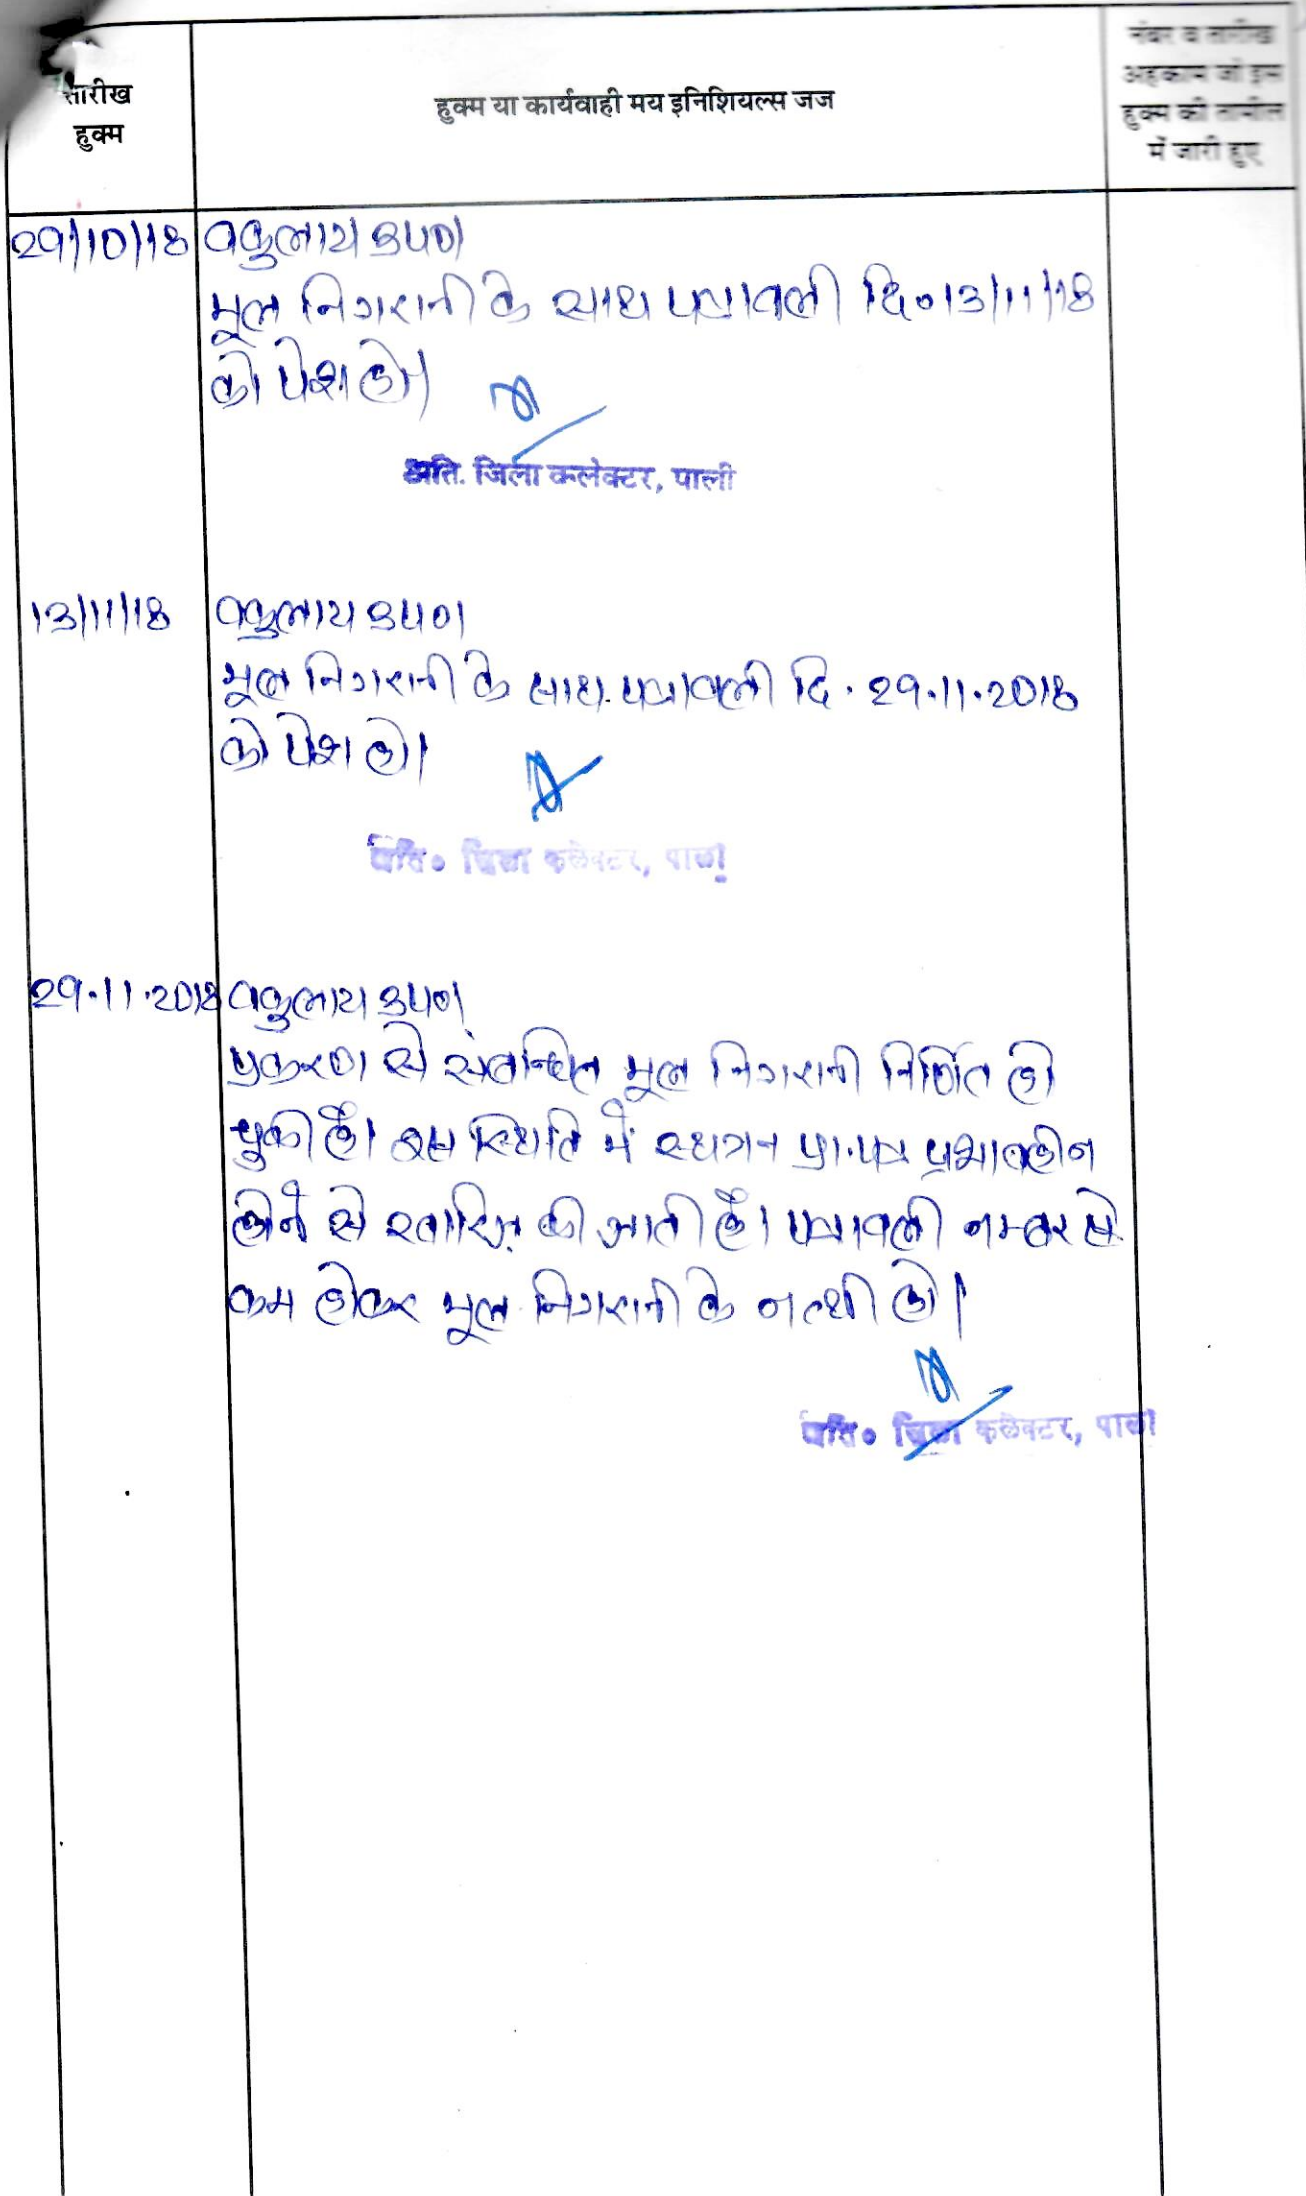 तारीख
हुक्म
हुक्म या कार्यवाही मय इनिशियल्स जज
नंबर व तारीख
अहकाम जो इस
हुक्म की तामील
में जारी हुए
29/10/18 वकुलाय उप०।
मूल निगरानी के साथ पत्रावली दि० 13/11/18
को पेश हो।
अति. जिला कलेक्टर, पाली
13/11/18 वकुलाय उप०।
मूल निगरानी के साथ पत्रावली दि. 29.11.2018
को पेश हो।
अति० जिला कलेक्टर, पाली
29.11.2018 वकुलाय उप०।
प्रकरण से संबन्धित मूल निगरानी निर्णित हो
चुकी है। इस स्थिति में स्थगन प्रा.पत्र प्रभावहीन
होने से खारिज की जाती है। पत्रावली नम्बर से
कम होकर मूल निगरानी के नत्थी हो।
अति० जिला कलेक्टर, पाली